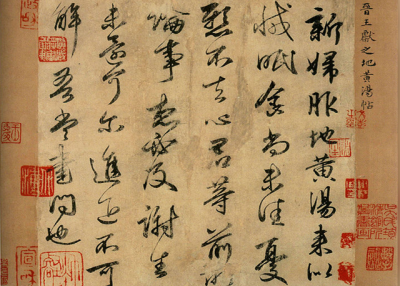 晉王獻之地黄湯帖
新婦服地黄湯來似
減眠食尚未佳憂
懸不去心君等前所
論事想必及謝生
未還可爾進退不可
解吾當書問也